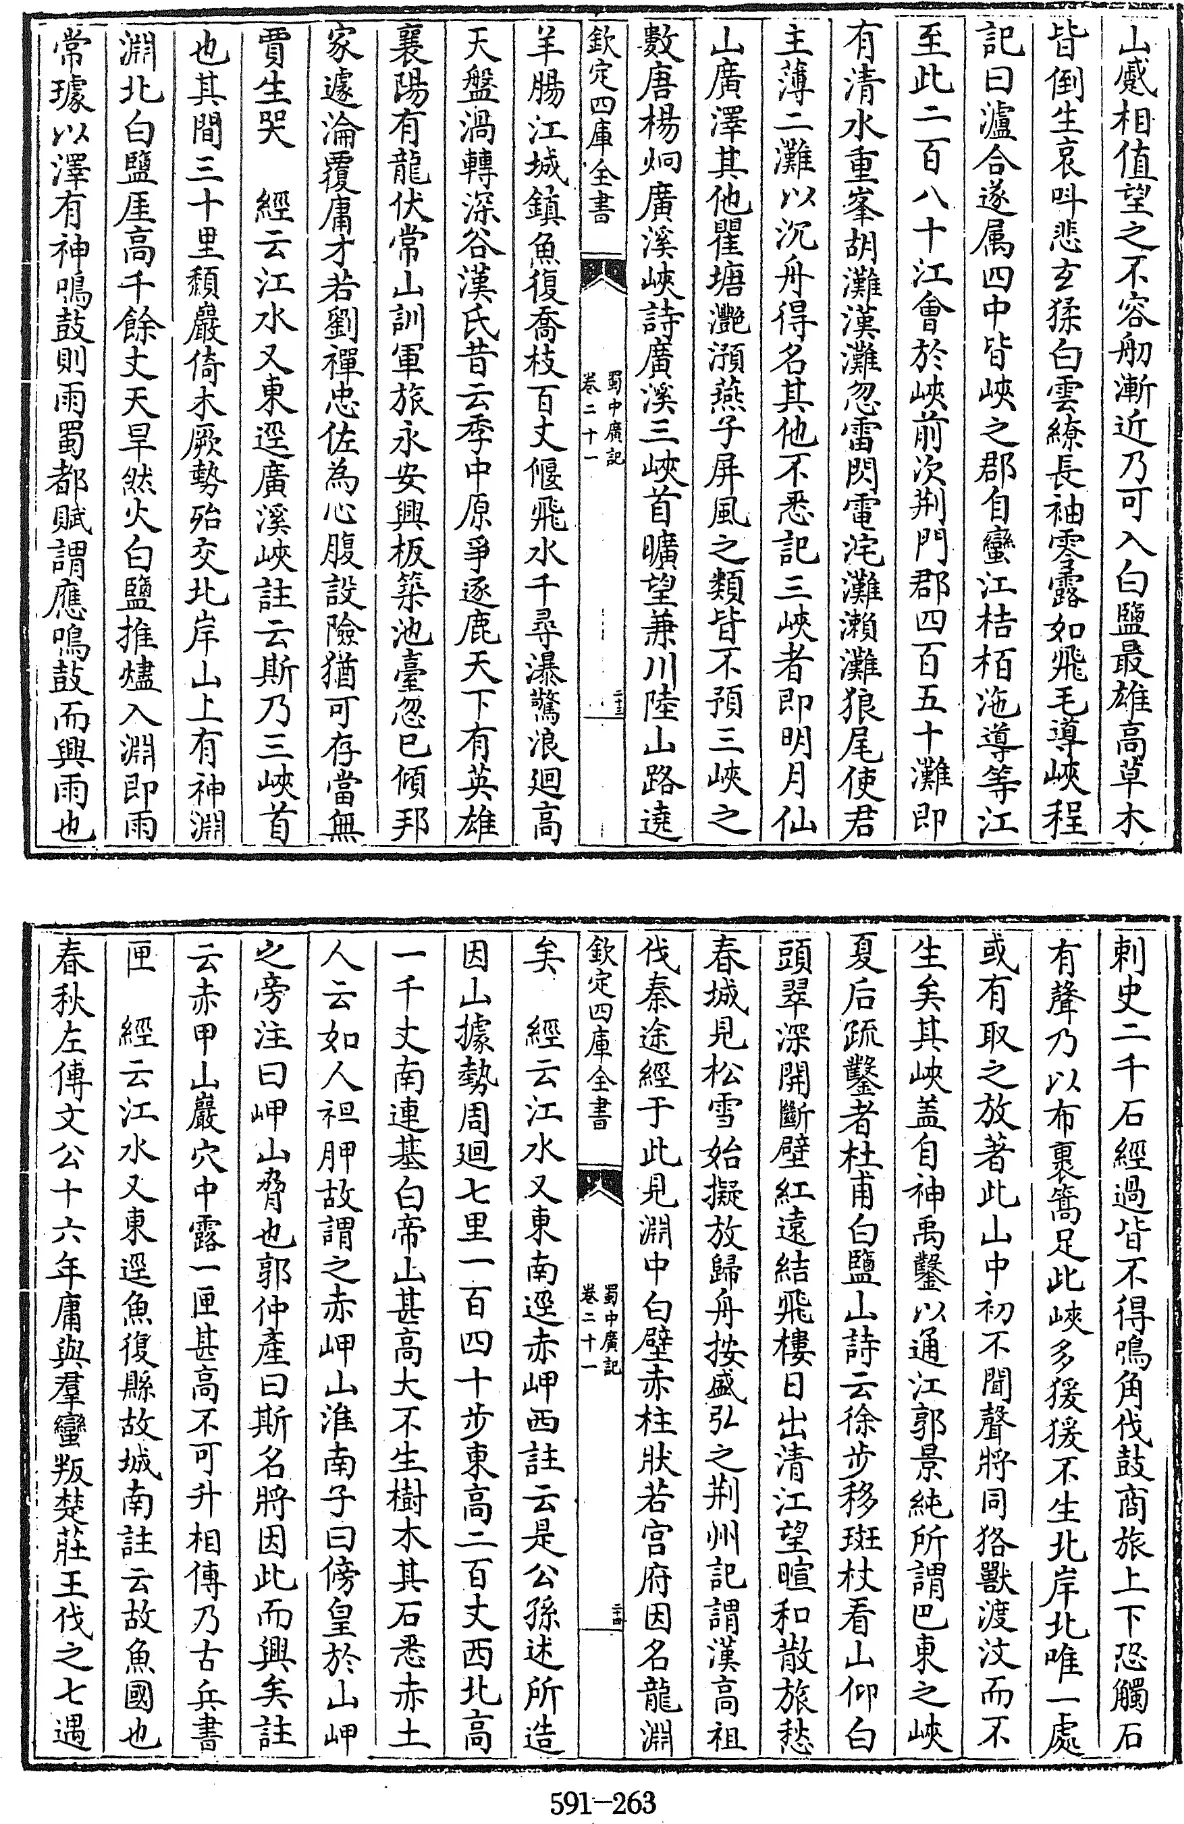 山蹙相值望之不容舠漸近乃可入白鹽最雄高草木
皆倒生哀叫悲玄猱白雲繚長袖零露如飛毛導峽程
記曰瀘合遂属四中皆峽之郡自蠻江桔栢沲導等江
至此二百八十江會於峽前次荆門郡四百五十灘即
有清水重峯胡灘漢灘忽雷閃電浣灘瀨灘狼尾使君
主薄二灘以沉舟得名其他不悉記三峽者即明月仙
山廣澤其他瞿塘灩澦燕子屏風之類皆不預三峽之
數唐楊炯廣溪峽詩廣溪三峽首曠望兼川陸山路遶
欽定四庫全書
蜀中廣記
卷二十一
二十三
羊腸江城鎮魚復喬枝百丈偃飛水千尋瀑驚浪廻高
天盤渦轉深谷漢氏昔云季中原爭逐鹿天下有英雄
襄陽有龍伏常山訓軍旅永安興板築池臺忽已傾邦
家遽淪覆庸才若劉禪忠佐為心腹設險猶可存當無
賈生哭　經云江水又東逕廣溪峽註云斯乃三峽首
也其間三十里頹巖倚木厥勢殆交北岸山上有神淵
淵北白鹽厓高千餘丈天旱然火白鹽推燼入淵即雨
常璩以澤有神鳴鼓則雨蜀都賦謂應鳴鼓而興雨也
刺史二千石經過皆不得鳴角伐鼓商旅上下恐觸石
有聲乃以布裹篙足此峽多猨猨不生北岸北唯一處
或有取之放著此山中初不聞聲將同狢獸渡汶而不
生矣其峽盖自神禹鑿以通江郭景純所謂巴東之峽
夏后疏鑿者杜甫白鹽山詩云徐步移斑杖看山仰白
頭翠深開斷壁紅遠結飛樓日出清江望暄和散旅愁
春城見松雪始擬放歸舟按盛弘之荆州記謂漢高祖
伐秦途經于此見淵中白壁赤柱狀若宫府因名龍淵
欽定四庫全書
蜀中廣記
卷二十一
二十四
矣　經云江水又東南逕赤岬西註云是公孫述所造
因山據勢周廻七里一百四十步東高二百丈西北高
一千丈南連基白帝山甚高大不生樹木其石悉赤土
人云如人袒胛故謂之赤岬山淮南子曰傍皇於山岬
之旁注曰岬山脅也郭仲產曰斯名將因此而興矣註
云赤甲山巖穴中露一匣甚高不可升相傳乃古兵書
匣　經云江水又東逕魚復縣故城南註云故魚國也
春秋左傳文公十六年庸與羣蠻叛楚莊王伐之七遇
591-263